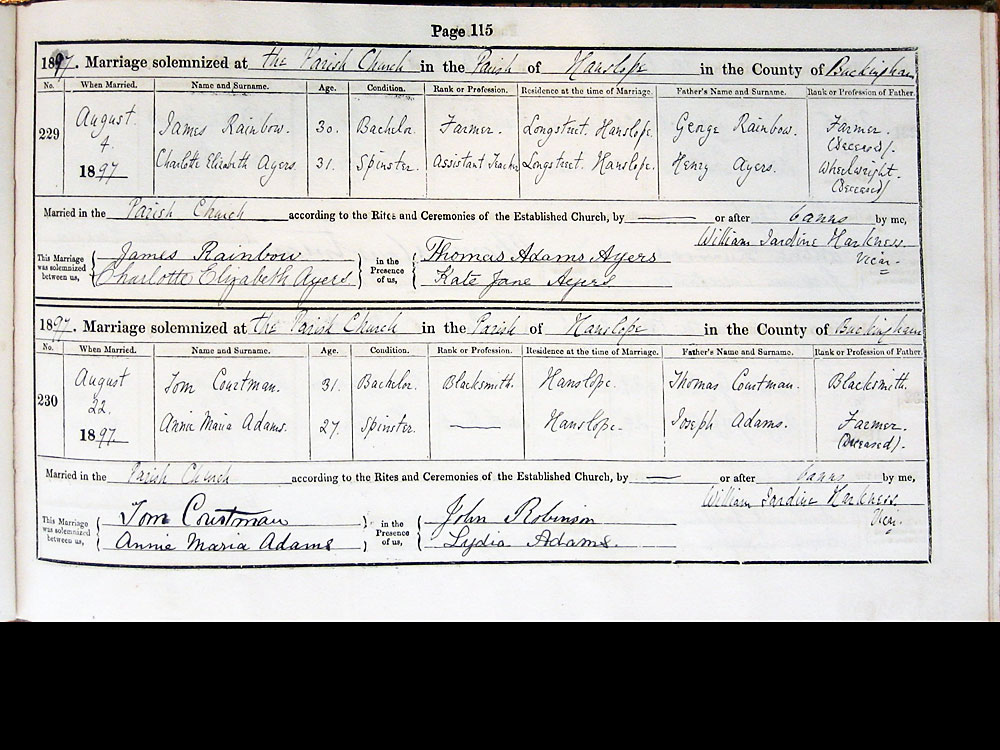 Page 115
1897. Marriage solemnized at the Parish Church in the Parish of Hanslope in the County of Buckingham
No. When Married. Name and Surname. Age. Condition. Rank or Profession. Residence at the time of Marriage. Father's Name and Surname. Rank or Profession of Father.
229 August 4. 1897 James Rainbow. 30. Bachelor. Farmer. Longstreet. Hanslope. George Rainbow. Farmer. (Deceased).
Charlotte Elizabeth Ayers. 31. Spinster. Assistant Teacher Longstreet. Hanslope. Henry Ayers. Wheelwright. (Deceased)
Married in the Parish Church according to the Rites and Ceremonies of the Established Church, by — or after banns by me,
William Jardine Harkness.
Vicar.
This Marriage was solemnized between us, { James Rainbow
Charlotte Elizabeth Ayers } in the Presence of us, { Thomas Adams Ayers
Kate Jane Ayers
1897. Marriage solemnized at the Parish Church in the Parish of Hanslope in the County of Buckingham
No. When Married. Name and Surname. Age. Condition. Rank or Profession. Residence at the time of Marriage. Father's Name and Surname. Rank or Profession of Father.
230 August 22. 1897 Tom Courtman. 31. Bachelor. Blacksmith. Hanslope. Thomas Courtman. Blacksmith.
Annie Maria Adams. 27. Spinster. — Hanslope. Joseph Adams. Farmer. (Deceased).
Married in the Parish Church according to the Rites and Ceremonies of the Established Church, by — or after banns by me,
William Jardine Harkness
Vicar.
This Marriage was solemnized between us, { Tom Courtman
Annie Maria Adams } in the Presence of us, { John Robinson
Lydia Adams.